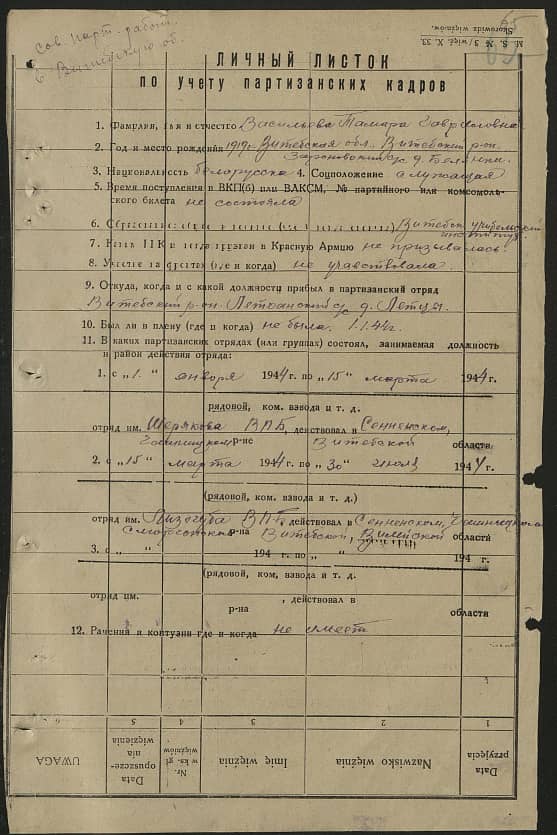 65
M. S. № 3/więź. X. 33.
Skorowidz więźniów.
сов. парт. работ.
в Витебскую об.
ЛИЧНЫЙ ЛИСТОК
по учету партизанских кадров
1. Фамилия, имя и отчество Васильева Тамара Гавриловна
2. Год и место рождения 1919 г. Витебская обл. Витебский р-он
с/с д.
3. Национальность белорусска 4. Соцположение служащая
5. Время поступления в ВКП(б) или ВЛКСМ, № партийного или комсомоль-
ского билета не состояла
6. Образование Витебск. учительский
институт
7. Каким РВК и призван в Красную Армию не призывалась
8. Участие на фронтах (где и когда) не участвовала.
9. Откуда, когда и с какой должности прибыл в партизанский отряд
Витебский р-он Летчанский с/с д. Летцы.
10. Был ли в плену (где и когда) не была. 1.1.44г.
11. В каких партизанских отрядах (или группах) состоял, занимаемая должность
и район действия отряда:
1. с „1.“ января 1944 г. по „15“ марта 1944 г.
рядовой, ком. взвода и т. д.
отряд им. Ширякова ВПБ, действовал в Сенненском,
р-не Витебской области
2. с „15“ марта 1944 г. по „30“ июля 1944 г.
(рядовой, ком. взвода и т. д.)
отряд им. ВПБ, действовал в Сенненском, Чашникском
р-на Витебской, Вилейской области
3. с „ “ 194 г. по „ “ 194 г.
(рядовой, ком, взвода и т. д.
отряд им. , действовал в
р-на области
12. Ранений и контузии где и когда не имеет
6 5 4 3 2 1
UWAGA
Data opuszcze- nia więzienia
Nr. w ks. gł. więźniów
Imię więźnia
Nazwisko więźnia
Data przyjęcia